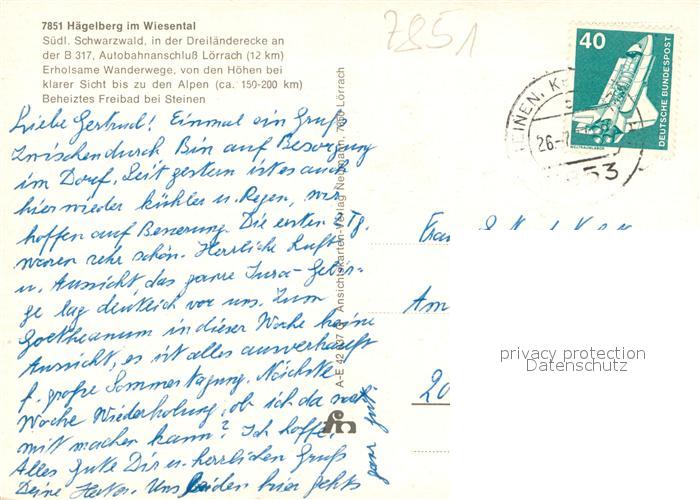 7851 Hägelberg im Wiesental
Südl. Schwarzwald, in der Dreiländerecke an
der B 317, Autobahnanschluß Lörrach (12 km)
Erholsame Wanderwege, von den Höhen bei
klarer Sicht bis zu den Alpen (ca. 150-200 km)
Beheiztes Freibad bei Steinen
7851
40
DEUTSCHE BUNDESPOST
EINEN, K
26.
53
Liebe Gertrud! Einmal ein Gruß
zwischendurch Bin auf Besorgung
im Dorf. Seit gestern ist es auch
hier wieder kühler u. Regen, wir
hoffen auf Besserung. Die ersten Tg.
waren sehr schön. Herrliche Luft
u. Aussicht das ganze Jura-Gebir-
ge lag deutlich vor uns. Zum
Goetheanum in dieser Woche keine
Aussicht, es ist alles ausverkauft
f. große Sommertagung. Nächste
Woche Wiederholung, ob ich da noch
mit machen kann? Ich hoffe.
Alles Gute Dir u. herzlichen Gruß
Deine Uns beiden hier gehts
ganz gut
Ansichtskarten-Verlag Neumann 7850 Lörrach
Frau
Am
20
privacy protection
Datenschutz